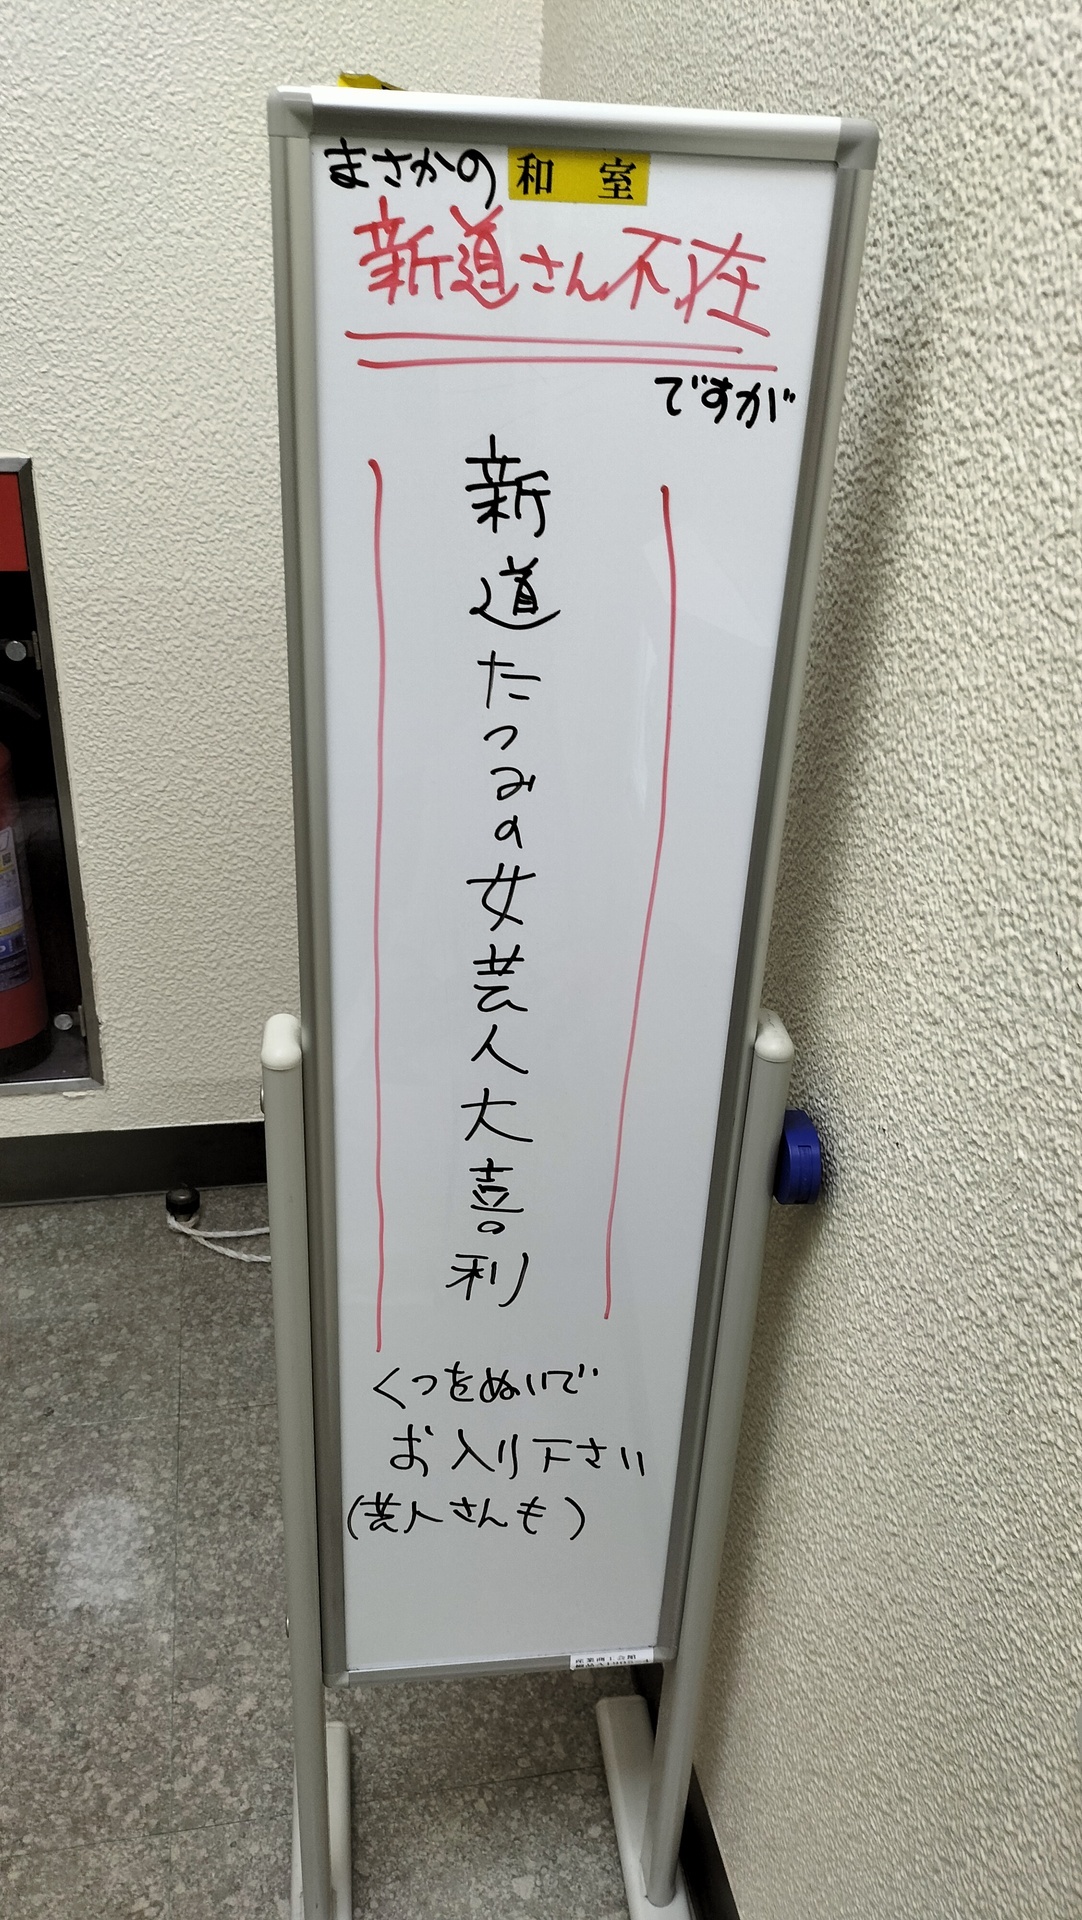 まさかの 和室
新道さん不在
ですが
新道たつみの女芸人大喜利
くつをぬいで
お入り下さい
(芸人さんも)